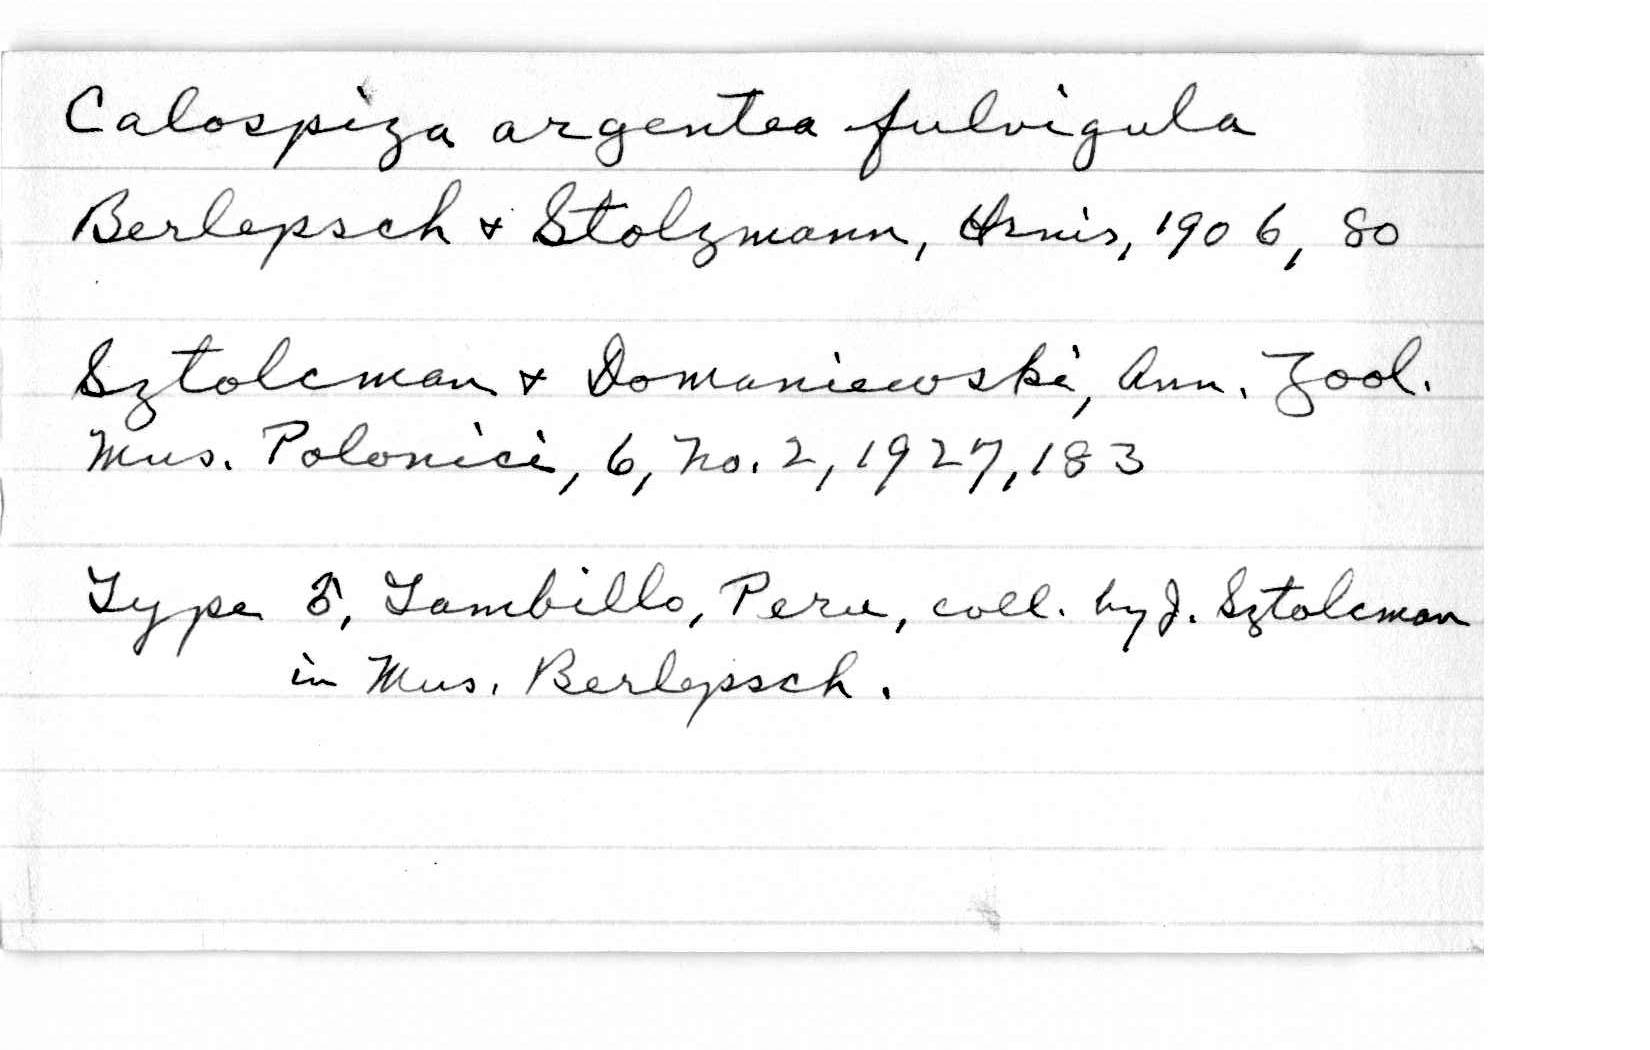 Calospiza argentea fulvigula
Berlepsch & Stolzmann, Ornis, 1906, 80
Sztolcman & Domaniewski, Ann. Zool.
Mus. Polonici, 6, no. 2, 1927, 183
Type ♂, Tambillo, Peru, coll. by J. Sztolcman
in Mus. Berlepsch.